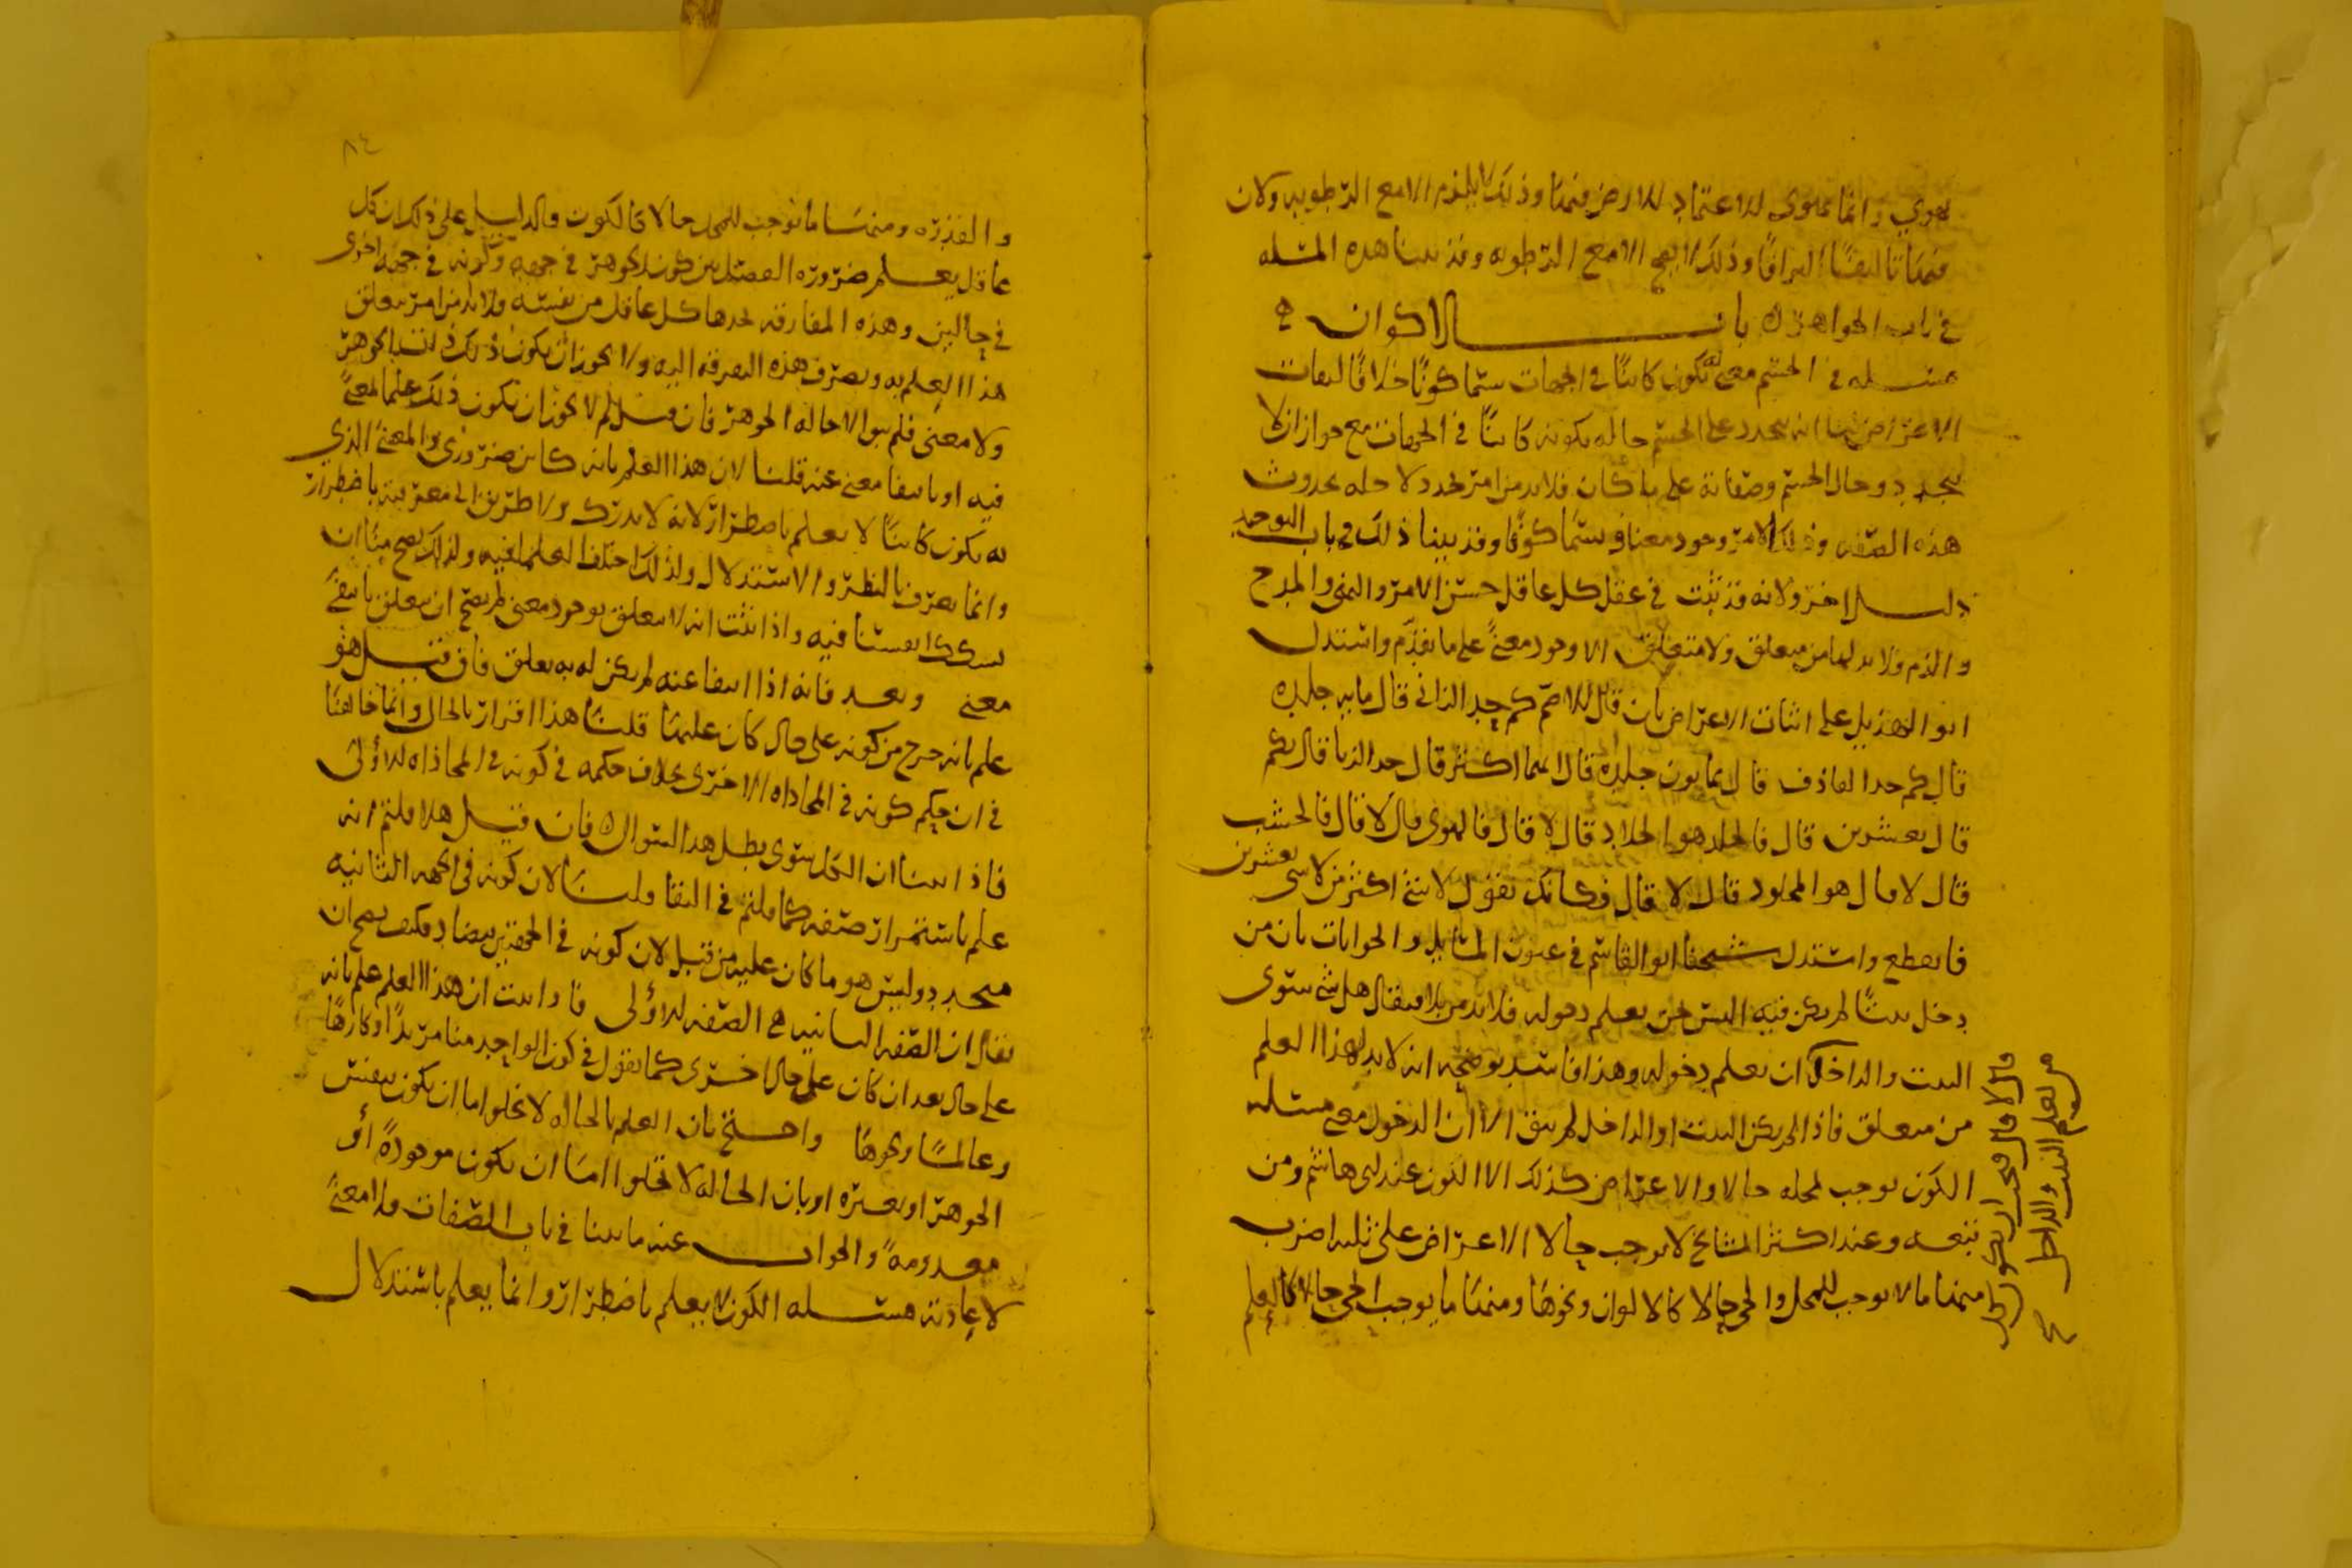 يقوى وانما يقوى الاعتماد اللازم فيهما وذلك لا يلزم الا مع الرطوبه ولان
فيهما تاليفا التزاقا وذلك لا يصح الا مع الرطوبه وقد بينا هذه المسله
في باب الجواهر باب الاكوان
مسله في الجسم معنى به يكون كاينا في الجهات سمى كونا خلافا لنفات
الاعراض لنا انه يتجدد على الجسم حاله بكونه كاينا في الجهات مع جواز ان لا
يتجدد وحال الجسم وصفاته على ما كان فلابد من امر تجدد لاجله بحدوث
هذه الصفه وذلك الامر وجود معنا ويسمى كونا وقد بينا ذلك في باب التوحيد
دليل اخر ولانه قد ثبت في عقل كل عاقل حسن الامر والنهي والمدح
والذم فلابد لهما من متعلق ولا متعلق الا وجود معنى على ما تقدم واستدل
ابو الهذيل على اثبات الاعراض بان قال للاصم كم حد الزاني قال مايه جلده
قال كم حد القاذف قال ثمانون جلده قال ايهما اكثر قال حد الزنا قال بكم
قال بعشرين قال فالجلد هو الجلاد قال لا قال فالهوى قال لا قال فالخشب
قال لا قال هو المجلود قال لا قال فكانك تقول لا شي اكثر من لا شي بعشرين
فانقطع واستدل شيخنا ابو القاسم في عيون المسايل والجوابات بان من
دخل بيتا لم يكن فيه اليس من يعلم دخوله فلابد من بلا فيقال هل شي سوى
البيت والداخل ان يعلم دخوله وهذا فاسد يوضحه انه لابد لهذا العلم
من متعلق فاذا لم يكن البيت او الداخل لم يبق الا ان الدخول معنى مسله
الكون يوجب لمحله حالا والاعراض كذلك الا اللون عند ابي هاشم ومن
تبعه وعند اكثر المشايخ لا يوجب حالا الاعراض على ثلثه اضرب
منها ما لا يوجب للمحل والحي حالا كالالوان ونحوها ومنها ما يوجب الحي حالا كالعلم
من يعلم البيت والداخل
٨٤
والقدره ومنها ما توجب للمحل حالا كالكون والدليل على ذلك ان كل
عاقل يعلم ضروره الفصل بين كون الجوهر في جهه وكونه في جهه اخرى
في حالين وهذه المفارقه يجدها كل عاقل من نفسه ولابد من امر يتعلق
هذا العلم به وتصرف هذه التفرقه اليه ولا يجوز ان يكون ذلك ذات الجوهر
ولا معنى فلم يبق الا حاله الجوهر فان قيل لم لا يجوز ان يكون ذلك علما لمعنى
فيه او بانتفا معنى عنه قلنا لان هذا العلم بانه كاين ضروري والمعنى الذي
به يكون كاينا لا يعلم باضطرار لانه لا يدرك ولا طريق الى معرفته باضطرار
وانما يعرف بالنظر والاستدلال ولذلك اختلف العلما فيه ولذلك يصح منا ان
نشكك انفسنا فيه واذا ثبت انه لا يتعلق بوجود معنى لم يصح ان يتعلق بانتفى
معنى وبعد فانه اذا انتفا عنه لم يكن له به تعلق فان قيل هو
علم بانه خرج من كونه على حال كان عليها قلنا هذا اقرار بالحال وانما خالفنا
في ان حكم كونه في المحاذاه الاخرى خلاف حكمه في كونه في المحاذاه الاولى
فاذا بينا ان الكل سوى بطل هذا السوال فان قيل هلا قلتم انه
علم باستمرار صفه كما قلتم في البقا قلنا لان كونه في الجهه الثانيه
متجدد وليس هو ما كان عليه من قبل لان كونه في الجهتين يتضاد فكيف يصح ان
يقال ان الصفه الثانيه هي الصفه الاولى فاذا ثبت ان هذا العلم علم بانه
على حال بعد ان كان على حال اخرى كما نقول في كون الواحد منا مريدا وكارها
وعالما ونحوها واحتج بان العلم بالحاله لا يخلوا اما ان يكون بنفس
الجوهر او بغيره او بان الحاله لا تخلوا اما ان يكون موجودة او
معدومة والجواب عنه ما بينا في باب الصفات ولا معنى
لاعادته مسله الكون لا يعلم باضطرار وانما يعلم باستدلال